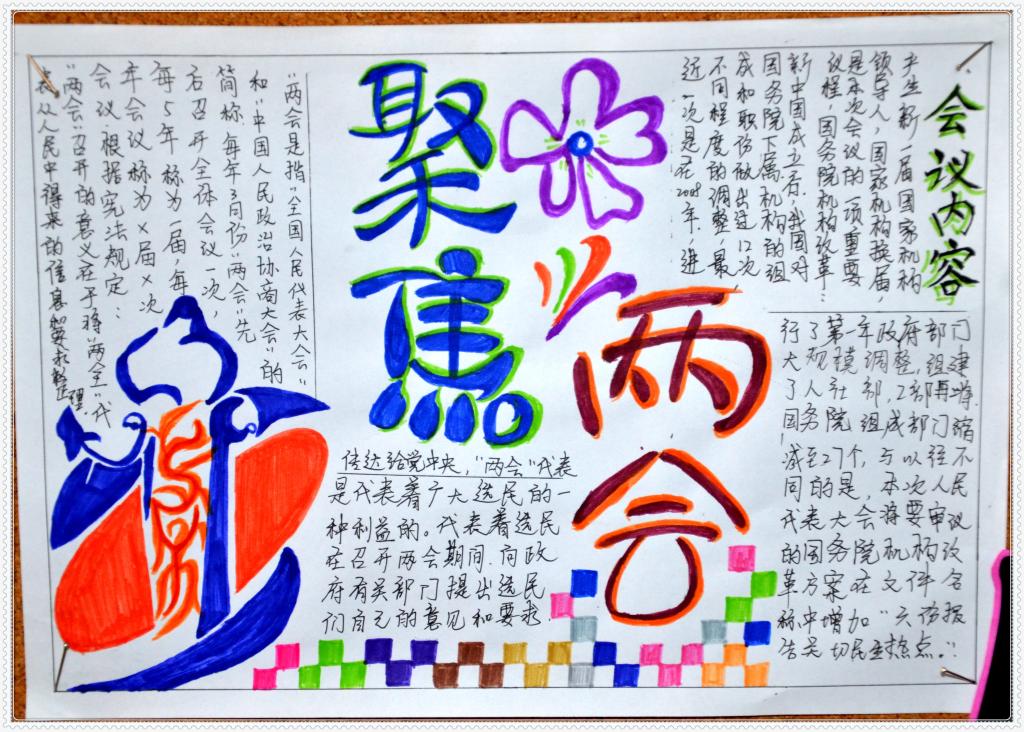 聚焦
两会
"两会是指"全国人民代表大会"
和"中国人民政治协商大会"的
简称,每年3月份"两会"先
后召开全体会议一次,
每5年称为一届,每
年会议称为×届×次
会议,根据宪法规定:
"两会"召开的意义在于将"两全"代
表从人民中得来的信息和要求整理
传达给党中央,"两会"代表
是代表着广大选民的一
种利益的。代表着选民
在召开两会期间,向政
府有关部门提出选民
们自己的意见和要求.
会议内容
产生新一届国家机构
领导人,国家机构换届,
是本次会议的一项重要
议程,国务院机构改革:
新中国成立后,我国对
国务院下属机构的组
成和职份做出过12次
不同程度的调整,最
近一次是在2008年,进
行了第一年政府部门
大规模调整,组建
了人社部,工部再增.
国务院组成部门缩
减至27个,与以往不
同的是,本次人民
代表大会将要审议
的国务院机构改
革方案在文件名
称中增加"六份报
告关切民生热点。: